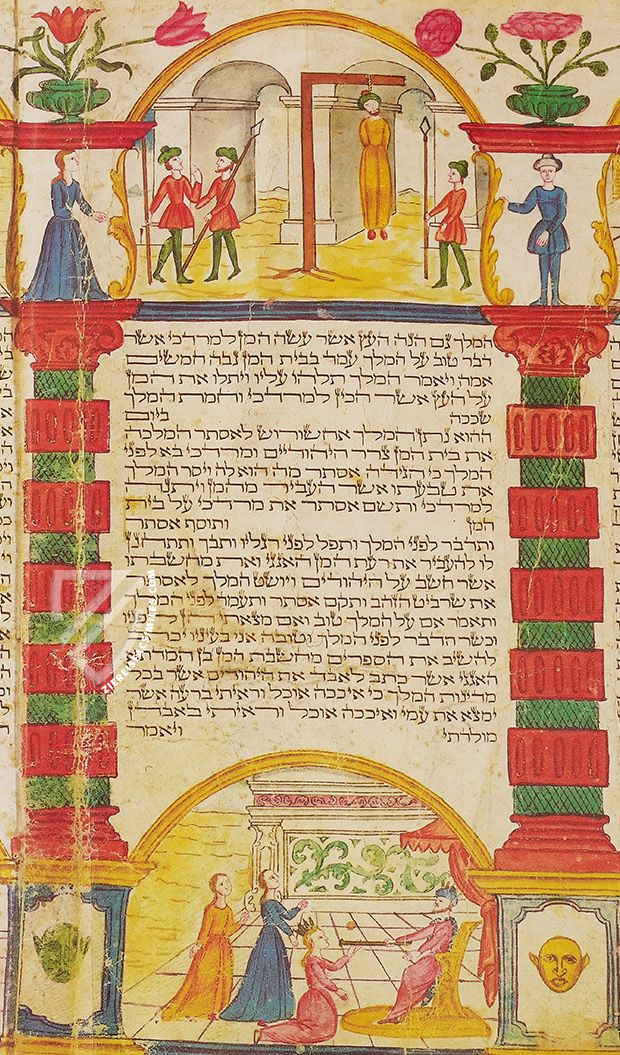 המלך גם הנה העץ אשר עשה המן למרדכי אשר
דבר טוב על המלך עמד בבית המן גבה חמשים
אמה ויאמר המלך תלהו עליו ויתלו את המן
על העץ אשר הכין למרדכי וחמת המלך
שככה ביום
ההוא נתן המלך אחשורוש לאסתר המלכה
את בית המן צרר היהודיים ומרדכי בא לפני
המלך כי הגידה אסתר מה הוא לה ויסר המלך
את טבעתו אשר העביר מהמן ויתנה
למרדכי ותשם אסתר את מרדכי על בית
המן ותוסף אסתר
ותדבר לפני המלך ותפל לפני רגליו ותבך ותתחנן
לו להעביר את רעת המן האגגי ואת מחשבתו
אשר חשב על היהודיים ויושט המלך לאסתר
את שרביט הזהב ותקם אסתר ותעמד לפני המלך
ותאמר אם על המלך טוב ואם מצאתי חן לפניו
וכשר הדבר לפני המלך וטובה אני בעיניו יכתב
להשיב את הספרים מחשבת המן בן המדתא
האגגי אשר כתב לאבד את היהודים אשר בכל
מדינות המלך כי איככה אוכל וראיתי ברעה אשר
ימצא את עמי ואיככה אוכל וראיתי באבדן
מולדתי ויאמר